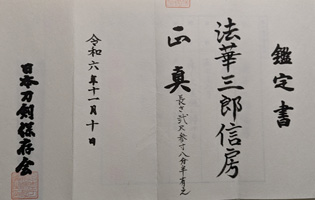 鑑定書
法華三郎信房
正真
長さ弐尺参寸八分半有之
令和六年十一月十日
日本刀剣保存会